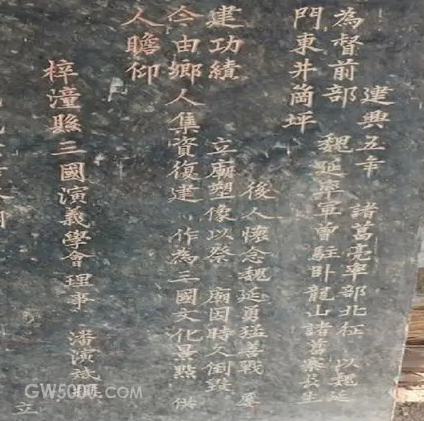 建興五年 諸葛亮率部北征 以魏延
為督前部 魏延率軍曾駐卧龍山諸葛寨長生
門東井箇坪
後人懷念魏延勇猛善戰 屢
建功績 立廟塑像以祭 廟因時久倒毀
今由鄉人集資復建 作為三國文化景點 供
人瞻仰
梓潼縣三國演義學會理事 潘演斌撰
立
GW500T.com